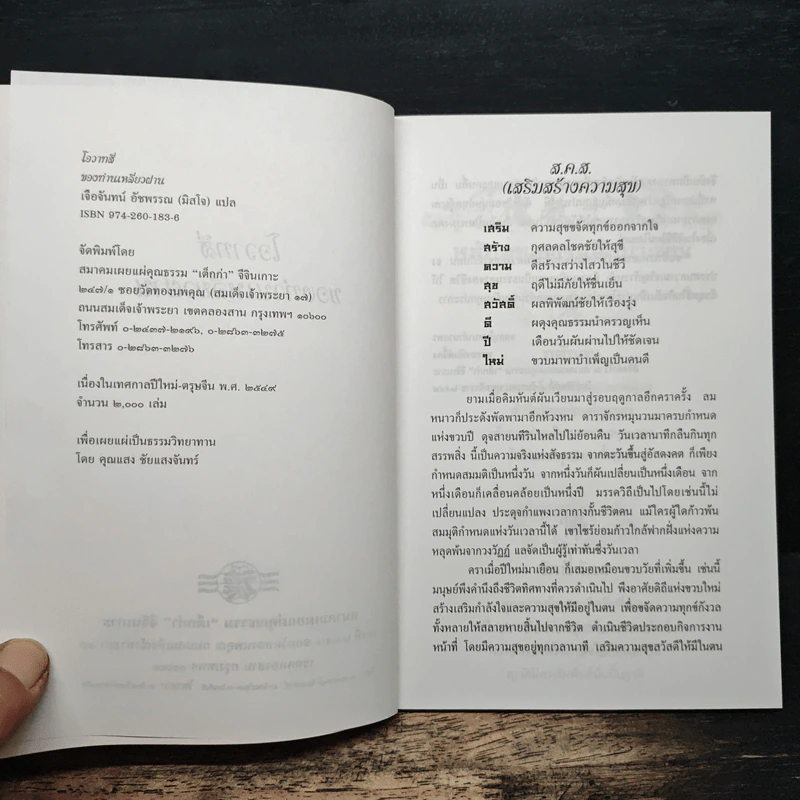 โอวาทสี่
ของท่านเหลี่ยวฝาน
เจือจันทน์ อัชพรรณ (มิสโจ) แปล
ISBN 974-260-183-6
จัดพิมพ์โดย
สมาคมเผยแผ่คุณธรรม “เต็กก่า” จีจินเกาะ
๒๔๗/๑ ซอยวัดทองนพคุณ (สมเด็จเจ้าพระยา ๑๗)
ถนนสมเด็จเจ้าพระยา เขตคลองสาน กรุงเทพฯ ๑๐๖๐๐
โทรศัพท์ ๐-๒๔๓๗-๒๑๙๖, ๐-๒๘๖๓-๓๒๗๕
โทรสาร ๐-๒๘๖๓-๓๒๗๖
เนื่องในเทศกาลปีใหม่-ตรุษจีน พ.ศ. ๒๕๔๙
จำนวน ๒,๐๐๐ เล่ม
เพื่อเผยแผ่เป็นธรรมวิทยาทาน
โดย คุณแสง ชัยแสงจันทร์
ส.ค.ส.
(เสริมสร้างความสุข)
เสริม ความสุขขจัดทุกข์ออกจากใจ
สร้าง กุศลดลโชคชัยให้สุขี
ความ ดีสร้างสว่างไสวในชีวี
สุข ฤดีไม่มีภัยให้ชื่นเย็น
สวัสดิ์ ผลพิพัฒน์ชัยให้เรืองรุ่ง
ดี ผดุงคุณธรรมนำครวญเห็น
ปี เดือนวันผันผ่านไปให้ชัดเจน
ใหม่ ขวบมาพาบำเพ็ญเป็นคนดี
ยามเมื่อคิมหันต์ผันเวียนมาสู่รอบฤดูกาลอีกคราครั้ง ลม
หนาวก็ประดังพัดพามาอีกห้วงหน ดาราจักรหมุนวนมาครบกำหนด
แห่งขวบปี ดุจสายนทีรินไหลไปไม่ย้อนคืน วันเวลานาทีกลืนกินทุก
สรรพสิ่ง นี้เป็นความจริงแห่งสัจธรรม จากตะวันขึ้นสู่อัสดงคต ก็เพียง
กำหนดสมมติเป็นหนึ่งวัน จากหนึ่งวันก็ผันเปลี่ยนเป็นหนึ่งเดือน จาก
หนึ่งเดือนก็เคลื่อนคล้อยเป็นหนึ่งปี มรรควิถีเป็นไปโดยเช่นนี้ไม่
เปลี่ยนแปลง ประดุจกำแพงเวลากางกั้นชีวิตคน แม้ใครผู้ใดก้าวพ้น
สมมุติกำหนดแห่งวันเวลานี้ได้ เขาไซร้ย่อมก้าวใกล้ฟากฝั่งแห่งความ
หลุดพ้นจากวงวัฏฏ์ แลจัดเป็นผู้รู้เท่าทันซึ่งวันเวลา
คราเมื่อปีใหม่มาเยือน ก็เสมอเหมือนขวบวัยที่เพิ่มขึ้น เช่นนี้
มนุษย์พึงคำนึงถึงชีวิตทิศทางที่ควรดำเนินไป พึงอาศัยดิถีแห่งขวบใหม่
สร้างเสริมกำลังใจและความสุขให้มีอยู่ในตน เพื่อขจัดความทุกข์กังวล
ทั้งหลายให้สลายหายสิ้นไปจากชีวิต ดำเนินชีวิตประกอบกิจการงาน
หน้าที่ โดยมีความสุขอยู่ทุกเวลานาที เสริมความสุขสวัสดีให้มีในตน